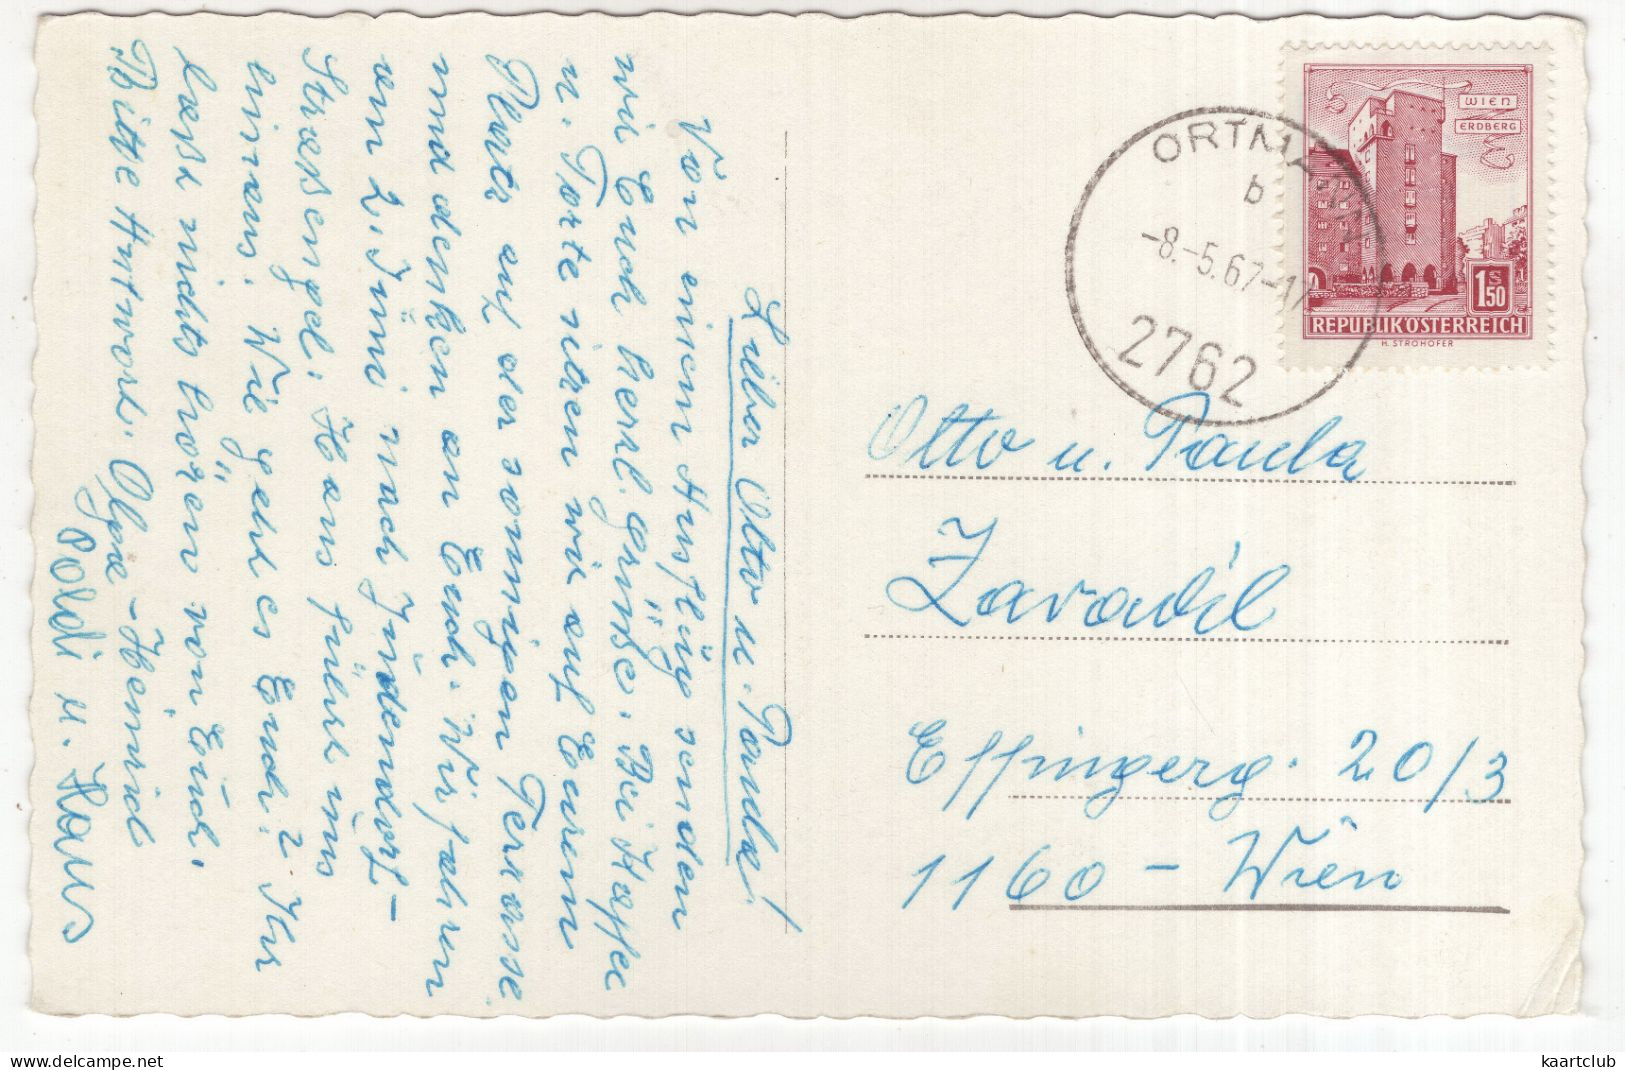 Lieber Otto u. Paula!
Von einem Ausflug senden
wir Euch herzl. Grüße. Bei Kaffee
u. Torte sitzen wir auf Eurem
Platz auf der sonnigen Terrasse
und denken an Euch. Wir fahren
am 2. Juni nach Judendorf-
Straßengel. Hans führt uns
hinaus. Wie geht es Euch? Ihr
laßt nichts hören von Euch.
Bitte Antwort. Olga - Heinrich
Poldi u. Hans
WIEN
ERDBERG
1 S 50
REPUBLIK ÖSTERREICH
H. STROHOFER
ORTMANN
b
-8.-5.67-17
2762
Otto u. Paula
Zavadil
Effingerg. 20/3
1160 - Wien
www.delcampe.net
kaartclub